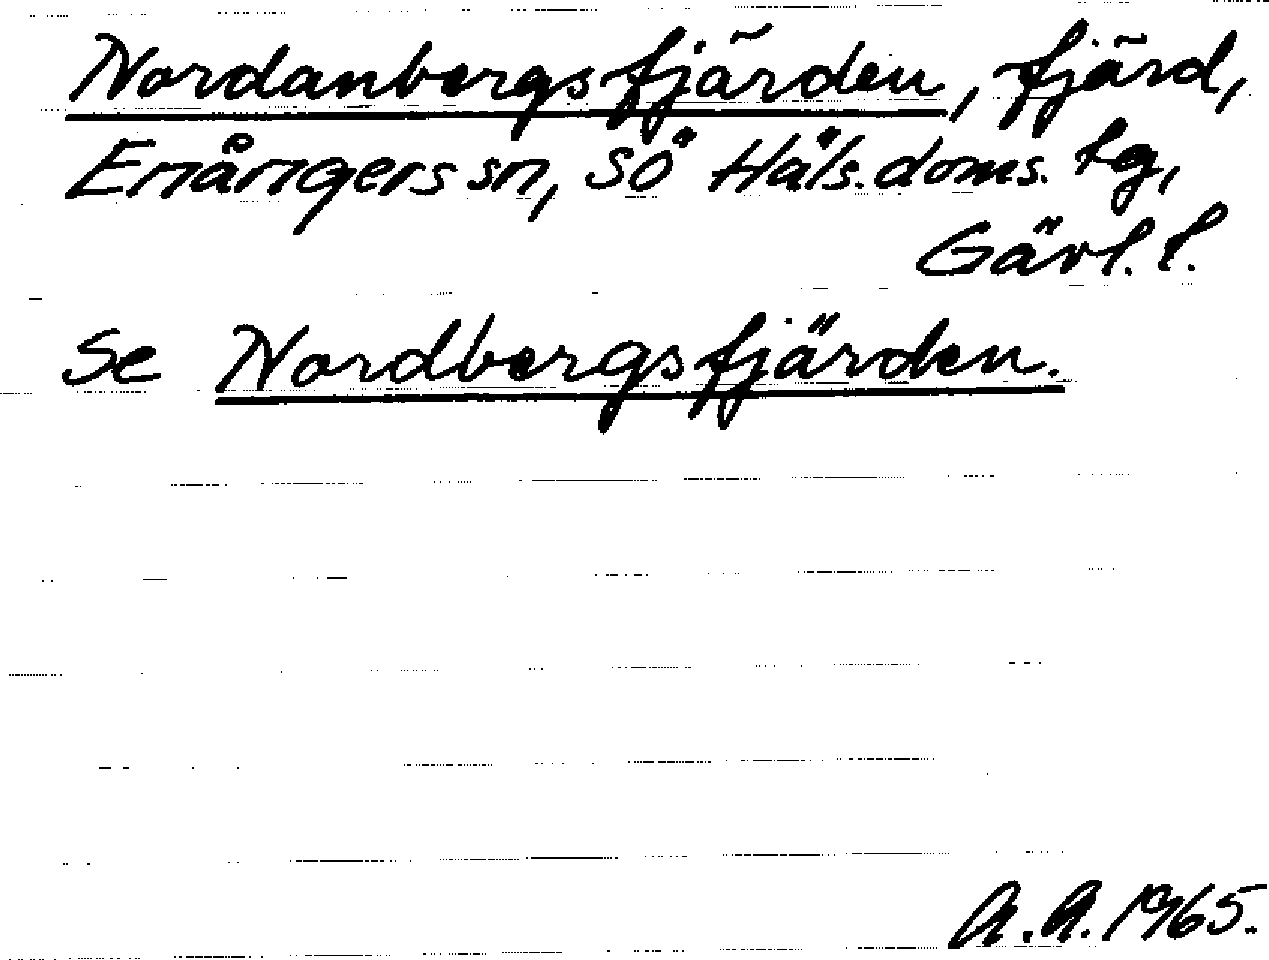 Nordanbergsfjärden, fjärd,
Enångers sn, SÖ Häls. doms. tg,
Gävl. l.
Se Nordbergsfjärden.
A. A. 1965.